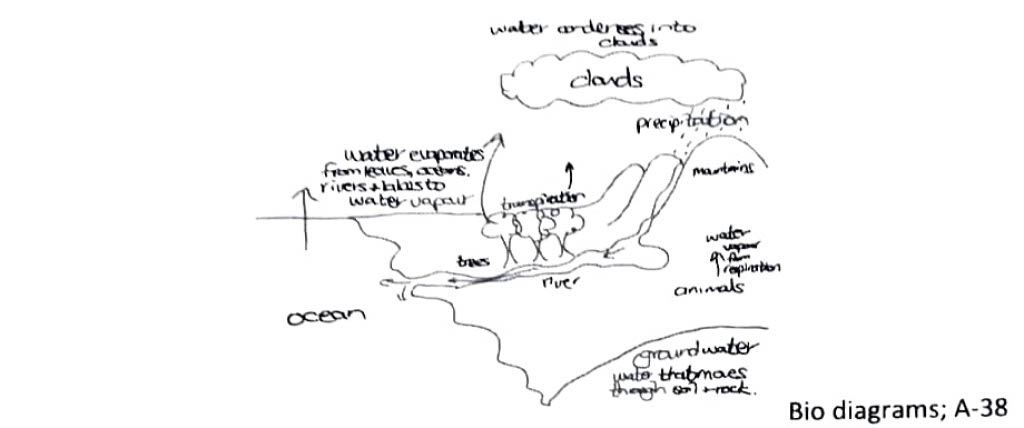 water condenses into
clouds
clouds
precipitation
water evaporates
from leaves, oceans.
rivers + lakes to
water vapour
transpiration
mountains
water
vapour
from
respiration
animals
trees
river
ocean
groundwater
water that moves
through soil + rock.
Bio diagrams; A-38